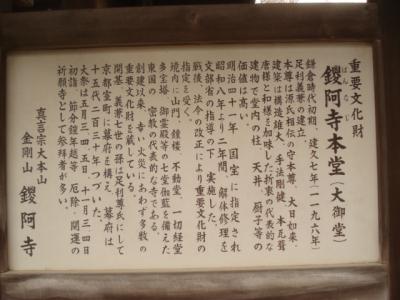 重要文化財
鑁阿寺本堂(大御堂)
ばんなじ
鎌倉時代初期、建久七年(一一九六年)
足利義兼の建立。
本尊は源氏相伝の守本尊、大日如来。
建築は構造雄大、手法剛健、本瓦葺
唐様と和様を加味した折衷の代表的な
建物で堂内の柱、天井、厨子等の
価値は高い。
明治四十一年、国宝に指定され
昭和八年より二年間、解体修理を
文部省の指導の下、実施した。
戦後、法令の改正により重要文化財の
指定を受く。
境内に山門、鐘楼、不動堂、一切経堂
多宝塔、御霊殿等の七堂伽藍を備えた
東国の密教の代表的な寺である。
創建以来、七百年、火災にあわず多数の
重要文化財を蔵している。
開基、義兼七世の孫は足利尊氏にして
京都室町に幕府を構え、幕府は
十五代二百三十年つづいた。
大祭は五月四日五日、十月三四日
初詣、節分鎧年越等、厄除、開運の
祈願寺として参拝者が多い。
真言宗大本山
金剛山 鑁阿寺